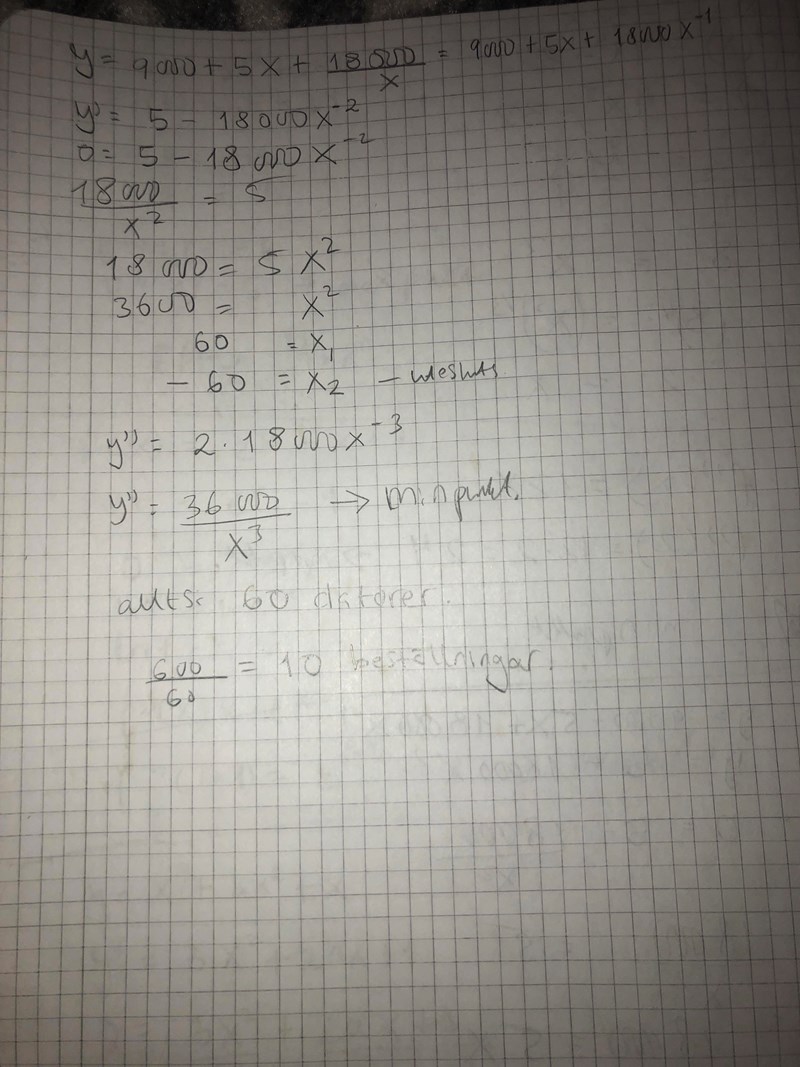 y = 9000 + 5x + 18000/x = 9000 + 5x + 18000x⁻¹
y' = 5 - 18000x⁻²
0 = 5 - 18000x⁻²
18000/x² = 5
18000 = 5x²
3600 = x²
60 = x₁
- 60 = x₂ -
y'' = 2·18000x⁻³
y'' = 36000/x³ → Minpunkt.
60 datorer.
600/60 = 10 beställningar.